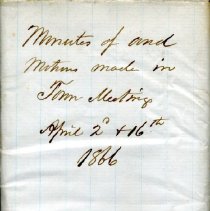 Minutes of and
Motions made in
Town Meetings
April 2d & 16th
1866